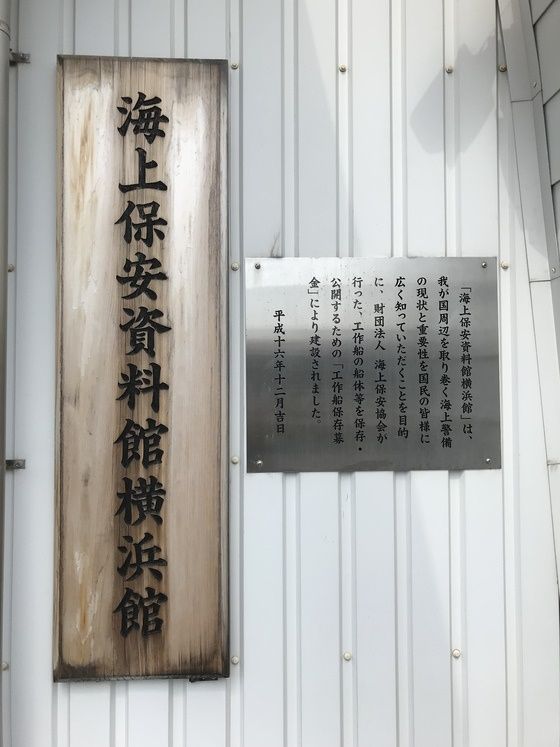 海上保安資料館横浜館
「海上保安資料館横浜館」は、
我が国周辺を取り巻く海上警備
の現状と重要性を国民の皆様に
広く知っていただくことを目的
に、財団法人 海上保安協会が
行った、工作船の船体等を保存・
公開するための「工作船保存募
金」により建設されました。
平成十六年十二月吉日